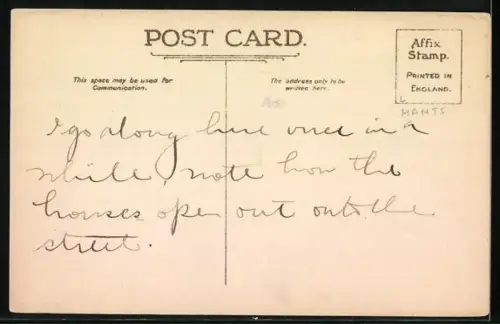 POST CARD.
This space may be used for
Communication.
The address only to be
written here.
Affix
Stamp.
PRINTED IN
ENGLAND.
HANTS
I go along here once in a
while, note how the
houses open out onto the
street.